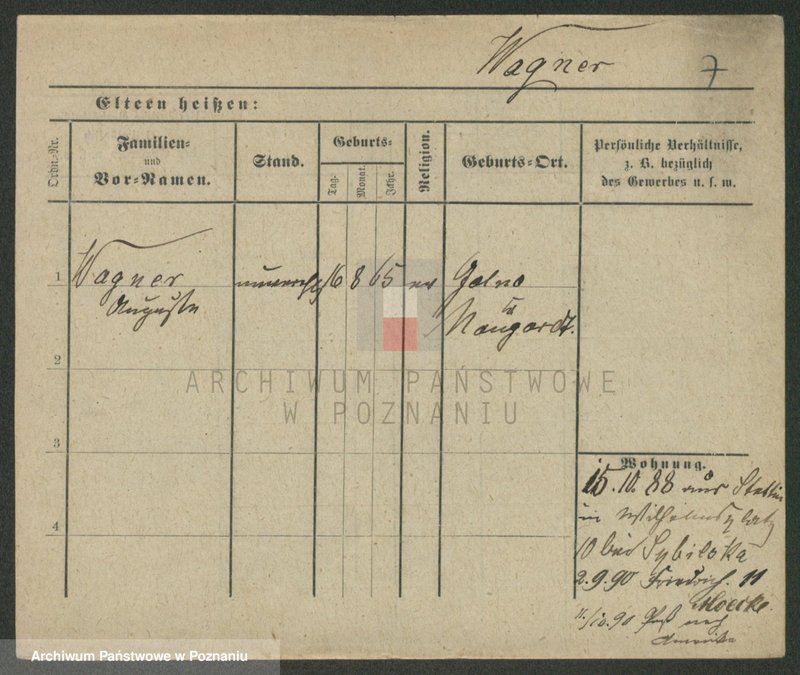 Wagner 7
Eltern heißen:
Ordn.-Nr.
Familien-
und
Vor-Namen.
Stand.
Geburts-
Tag.
Monat.
Jahr.
Religion.
Geburts-Ort.
Persönliche Verhältnisse,
z. B. bezüglich
des Gewerbes u. s. w.
1 Wagner 16 8 65 ev Golno
Auguste
Naugardt.
2
ARCHIWUM PAŃSTWOWE
W POZNANIU
3
Wohnung.
15.10.88 aus Stettin
in Wilhelmsplatz
4
10 bei Sybilska
2.9.90 Friedrich. 11
Moecke.
11/10.90 Paß nach
Amerika
Archiwum Państwowe w Poznaniu